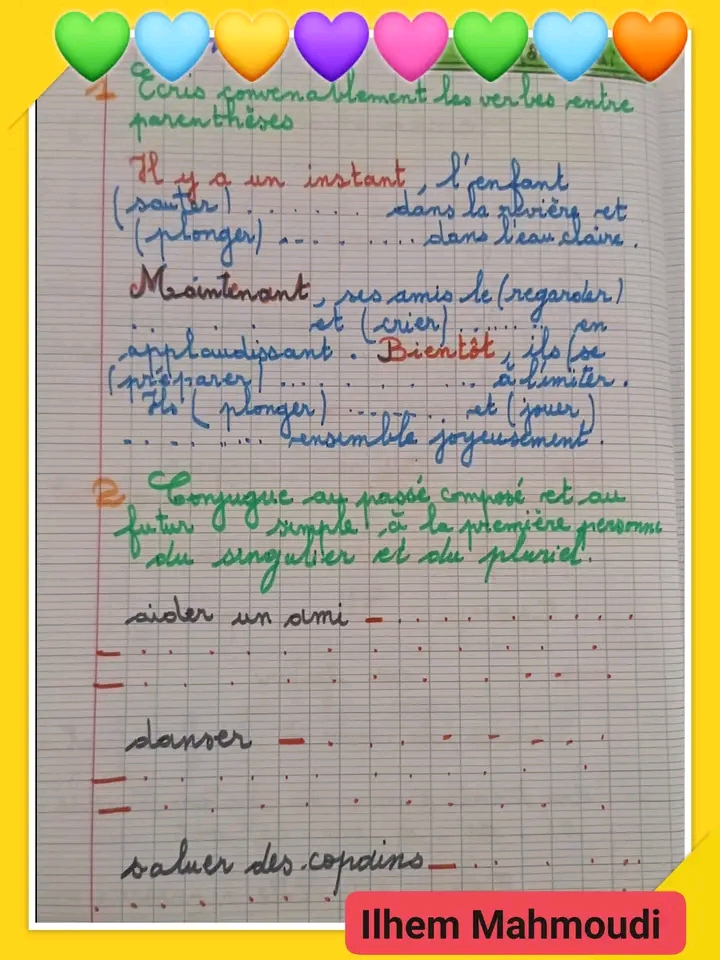 1 Ecris convenablement les verbes entre
parenthèses
Il y a un instant, l'enfant
(sauter) . . . . . . . dans la rivière et
(plonger) . . . . . . . dans l'eau claire.
Maintenant, ses amis le (regarder)
. . . . . et (crier) . . . . . . en
applaudissant. Bientôt, ils (se
(préparer) . . . . . . . . à l'imiter.
Ils ( plonger) . . . . . . et (jouer)
. . . . . . . ensemble joyeusement.
2 Conjugue au passé composé et au
futur simple à la première personne
du singulier et du pluriel.
aider un ami - . . . . . . . . .
- . . . . . . . . . .
- . . . . . . . . . .
danser - . . . - - - - .
- . . . . . . . . .
- . . . . . . . . .
saluer des copains - . . . . .
. . . . . . . .
Ilhem Mahmoudi